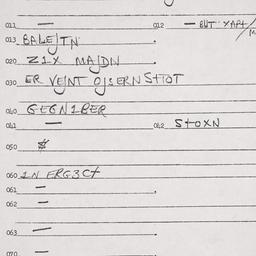 011 — 012 — BUT YAPT/M
013 BALEJTN
020 ZIX MAJDN
030 ER VEJNT OJSERNSTIOT
040 GEGNIBER
041 — 042 STOXN
050 $
060 IN ERG3Ct
061 —
062 —
063 —
070 —